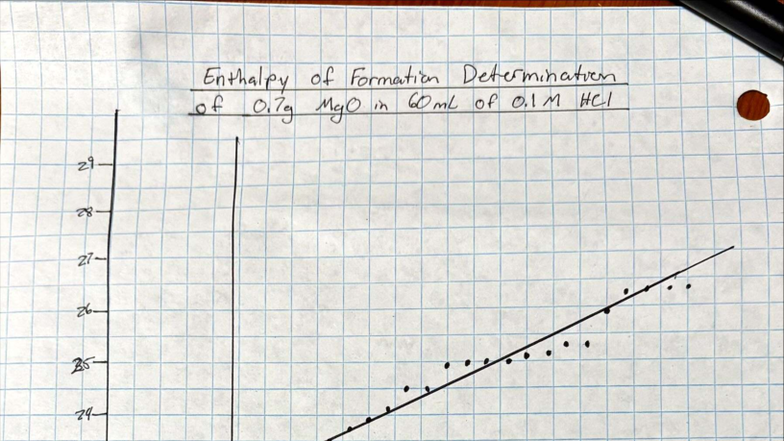 Enthalpy of Formation Determination
of 0.7g MgO in 60mL of 0.1M HCl
29
28
27
26
25
24